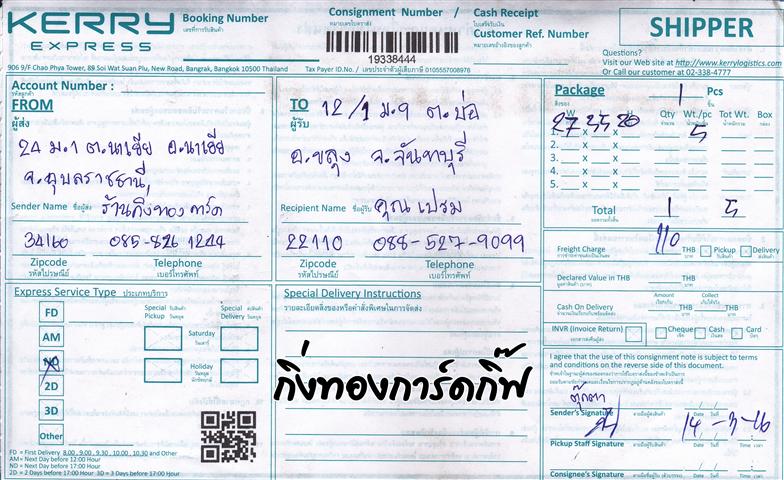 KERRY
EXPRESS
Booking Number
เลขที่การรับสินค้า
Consignment Number /
หมายเลขใบตราส่ง
19338444
Cash Receipt
ใบเสร็จรับเงิน
Customer Ref. Number
หมายเลขอ้างอิงของลูกค้า
SHIPPER
Questions?
Visit our Web site at http://www.kerrylogistics.com
Or Call our customer at 02-338-4777
906 9/F Chao Phya Tower, 89 Soi Wat Suan Plu, New Road, Bangrak, Bangkok 10500 Thailand
Tax Payer ID.No. / เลขประจำตัวผู้เสียภาษี 0105557008976
Account Number :
รหัสลูกค้า
FROM
ผู้ส่ง
24 ม.1 ต.นาเยีย อ.นาเยีย
จ.อุบลราชธานี
Sender Name ชื่อผู้ส่ง ร้านกิ่งทอง การ์ด
34160 085-826 1244
Zipcode Telephone
รหัสไปรษณีย์ เบอร์โทรศัพท์
TO 12/1 ม.9 ต.บ่อ
ผู้รับ
อ.ขลุง จ.จันทบุรี
Recipient Name ชื่อผู้รับ คุณ เปรม
22110 088-527-9099
Zipcode Telephone
รหัสไปรษณีย์ เบอร์โทรศัพท์
Package 1 Pcs
สิ่งของ ชิ้น
W Qty Wt./pc Tot Wt. Box
จำนวน น้ำหนัก น้ำหนักรวม กล่อง
27 x 35 x 20 5
2. x x
3. x x
4. x x
5. x x
Total 1 5
Freight Charge 110 THB Pickup Delivery
Declared Value in THB THB
Amount Collect
Cash On Delivery THB
INVR (Invoice Return) Cheque Cash Card
I agree that the use of this consignment note is subject to terms
and conditions on the reverse side of this document.
ตุ๊กตา
Sender's Signature 14-3-16
Pickup Staff Signature
Consignee's Signature
Express Service Type ประเภทบริการ
FD Special Pickup Special Delivery
AM Saturday
วันเสาร์
ND Holiday
วันหยุด
2D
3D
Other
FD = First Delivery 8.00 , 9.00 , 9.30 , 10.00 , 10.30 and Other
AM = Next Day before 12:00 Hour
ND = Next Day before 17:00 Hour
2D = 2 Days before 17:00 Hour 3D = 3 Days before 17:00 Hour
Special Delivery Instructions
รายละเอียดสิ่งของหรือคำสั่งพิเศษในการจัดส่ง
กิ่งทองการ์ดกิ๊ฟ